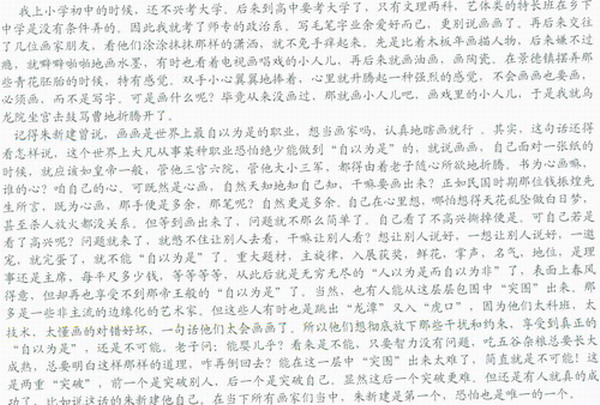 我上小学初中的时候，还不兴考大学。后来到高中要考大学了，只有文理两科，艺体类的特长班在乡下
中学是没有条件弄的。因此我就考了师专的政治系。写毛笔字业余爱好而已，更别说画画了。再后来交往
了几位画家朋友，看他们涂涂抹抹那样的潇洒，就不免手痒起来。先是比着木板年画描人物，后来嫌不过
瘾，就噼噼啪啪地画水墨，有时也看着电视画唱戏的小人儿，再后来就画油画，画陶瓷。在景德镇摆弄那
些青花胚胎的时候，特有感觉。双手小心翼翼地捧着，心里就升腾起一种强烈的感觉，不会画画也要画，
必须画，而不是写字。可是画什么呢？毕竟从来没过，那就画小人儿吧，画戏里的小人儿，于是我就乌
龙院坐宫击鼓骂曹地折腾开了。
记得朱新建曾说，画画是世界上最自以为是的职业，想当画家吗，认真地瞎画就行 。其实，这句话还得
看怎样说，这个世界上大凡从事某种职业恐怕绝少能做到“自以为是”的，就说画画，自己面对一张纸的
时候，就应该如皇帝一般，管他三宫六院，管他大小三军，都得由着老子随心所欲地折腾。书为心画嘛，
谁的心？咱自己的心。可既然是心画，自然天知地知自己知，干嘛要画出来？正如民国时期那位钱振煌先
生所言，既为心画，那手便是多余，那笔呢？自然更是多余。自己在心里想，哪怕想得天花乱坠做白日梦，
甚至杀人放火都没关系。但等到画出来了，问题就不那么简单了。自己看了不高兴撕掉便是。可自己若是
看了高兴呢？问题就来了，就憋不住让别人去看，干嘛让别人看？想让别人说好，一想让别人说好，一邀
宠，就完蛋了，就不能“自以为是”了。重大题材，主旋律，入展获奖，鲜花，掌声，名气，地位，是理
事还是主席，每平尺多少钱，等等等等，从此后就是无穷无尽的“人以为是而自以为非”了，表面上春风
得意，但却再也享受不到那帝王般的“自以为是”了。当然，也有人能从这层层包围中“突围”出来。那
多是一些非主流的边缘化的艺术家。但这些人有时也是跳出“龙潭”又入“虎口”，因为他们太科班，太
技术，太懂画的对错好坏，一句话他们太会画画了。所以他们想彻底放下那些干扰和约束，享受到真正的
“自以为是”，还是不可能。老子问：能婴儿乎？看来是不能，只要智力没有问题，吃五谷杂粮总要长大
成熟，总要明白这样那样的道理，咋再倒回去？能在这一层中“突围”出来太难了，简直就是不可能！这
是两重“突破”，前一个是突破别人，后一个是突破自己。显然这后一个突破更难。但还是有人就真的成
功了，比如说这话的朱新建他自己。在当下所有画家们当中，朱新建是第一个，恐怕也是唯一的一个。